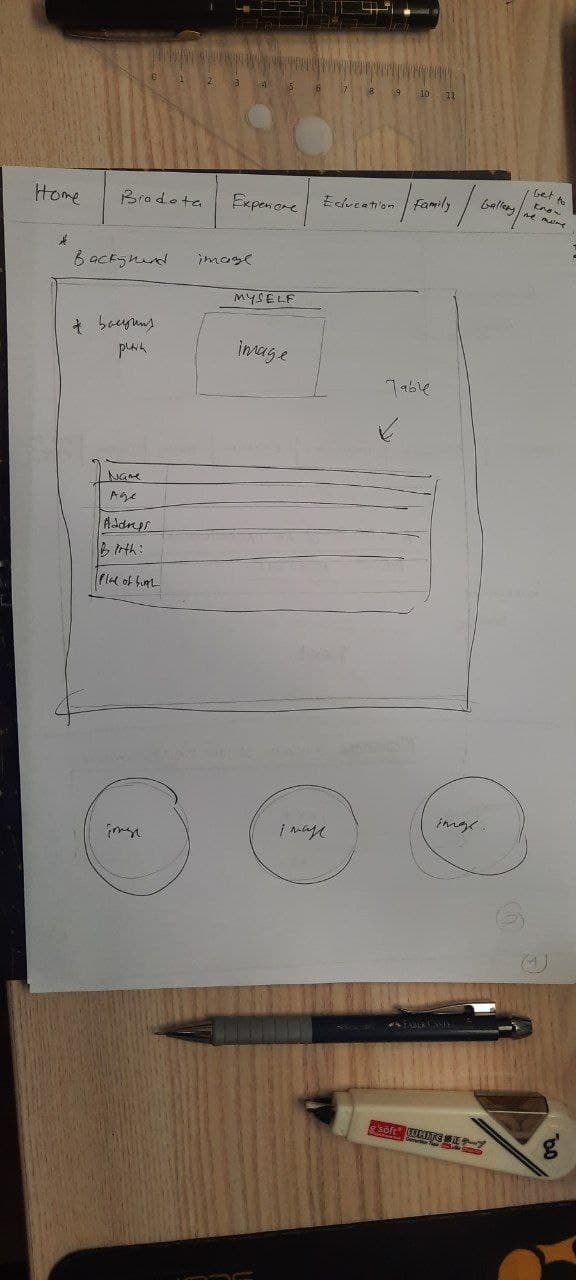 0 1 2 3 4 5 6 7 8 9 10 11
Home Biodata Experience Education Family Gallery Get to know me more
* Background image
MYSELF
* background
image
Table
Name
Age
Address
Birth:
Place of birth
image image image.
FABER-CASTELL
g'soft WHITE
Correction Tape
g'